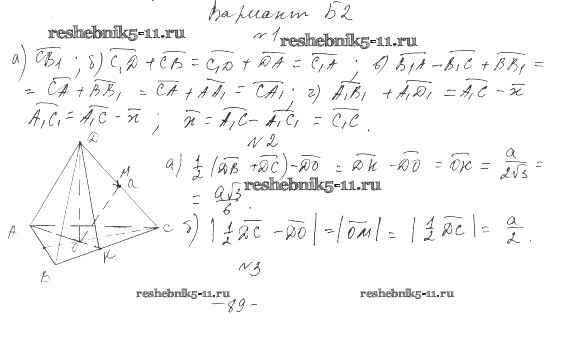 Вариант Б2
reshebnik5-11.ru
№1
reshebnik5-11.ru
а) CB₁ ; б) C₁D + CB = C₁D + DA = C₁A ; в) B₁A - B₁C + BB₁ =
= CA + BB₁ = CA + AA₁ = CA₁ ; г) A₁B₁ + A₁D₁ = A₁C - x
A₁C₁ = A₁C - x ; x = A₁C - A₁C₁ = C₁C .
№2
D
а) 1/2 (DB + DC) - DO = DK - DO = OK = a/2√3 =
M
a
reshebnik5-11.ru
= a√3/6 .
A
C
б) | 1/2 DC - DO | = | OM | = | 1/2 DC | = a/2 .
K
B
№3
reshebnik5-11.ru
reshebnik5-11.ru
-89-